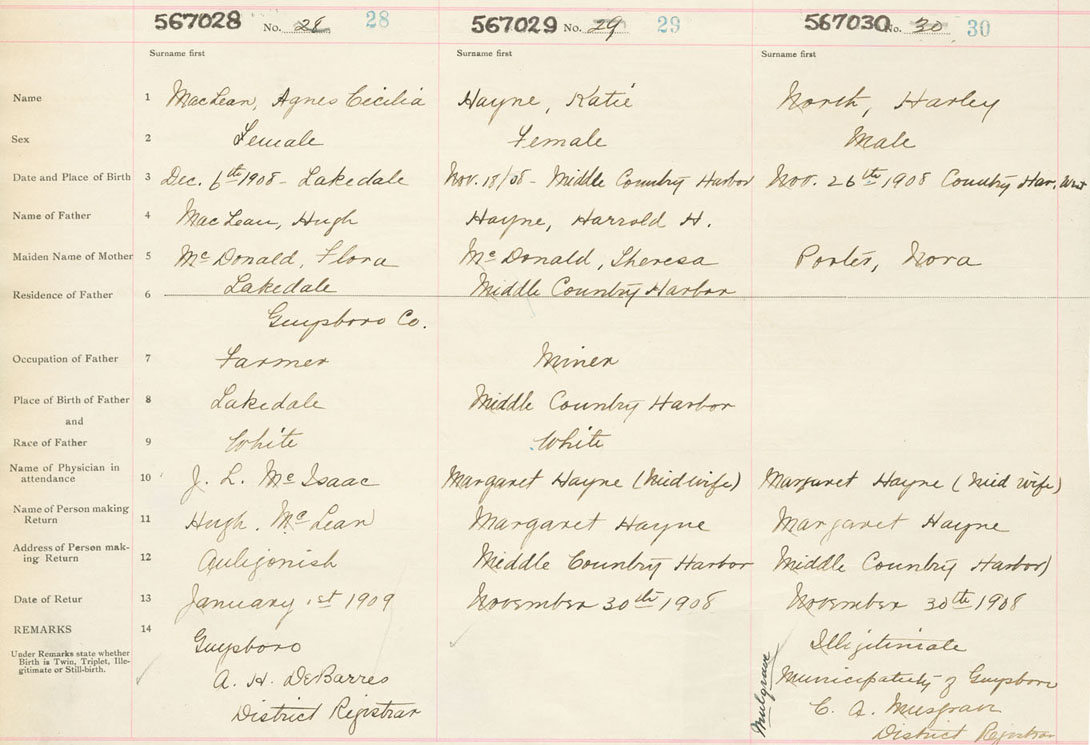 567028 No. 28 28 567029 No. 29 29 567030 No. 30 30
Surname first Surname first Surname first
Name 1 MacLean, Agnes Cicilia Hayne, Katie North, Harley
Sex 2 Female Female Male
Date and Place of Birth 3 Dec. 6th 1908 - Lakedale Nov. 18/08 - Middle Country Harbor Nov. 26th 1908 Country Har. West
Name of Father 4 MacLean, Hugh Hayne, Harrold H.
Maiden Name of Mother 5 McDonald, Flora McDonald, Theresa Porter, Nora
Residence of Father 6 Lakedale Middle Country Harbor
Guysboro Co.
Occupation of Father 7 Farmer Miner
Place of Birth of Father 8 Lakedale Middle Country Harbor
and
Race of Father 9 White White
Name of Physician in
attendance 10 J. L. McIsaac Margaret Hayne (Midwife) Margaret Hayne (Mid wife)
Name of Person making
Return 11 Hugh. McLean Margaret Hayne Margaret Hayne
Address of Person mak-
ing Return 12 Antigonish Middle Country Harbor Middle Country Harbor)
Date of Retur 13 January 1st 1909 November 30th 1908 November 30th 1908
REMARKS 14 Guysboro Illigitimate
Under Remarks state whether
Birth is Twin, Triplet, Ille-
gitimate or Still-birth.
A. H. DeBarres Municipatity of Guysboro
District Registrar C. A. Musgrave
Mulgrave District Registrar